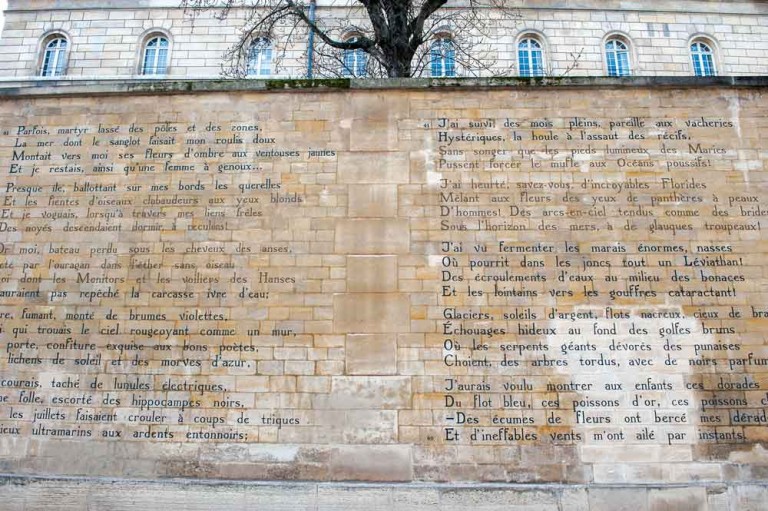 « Parfois, martyr lassé des pôles et des zones,
La mer dont le sanglot faisait mon roulis doux
Montait vers moi ses fleurs d'ombre aux ventouses jaunes
Et je restais, ainsi qu'une femme à genoux...
Presque île, ballottant sur mes bords les querelles
Et les fientes d'oiseaux clabaudeurs aux yeux blonds
Et je voguais, lorsqu'à travers mes liens frêles
Des noyés descendaient dormir à reculons!
Or moi, bateau perdu sous les cheveux des anses,
eté par l'ouragan dans l'éther sans oiseau
oi dont les Monitors et les voiliers des Hanses
auraient pas repêché la carcasse ivre d'eau;
re, fumant, monté de brumes violettes,
i qui trouais le ciel rougeoyant comme un mur,
porte, confiture exquise aux bons poètes,
lichens de soleil et des morves d'azur,
courais, taché de lunules électriques,
he folle, escorté des hippocampes noirs,
les juillets faisaient crouler à coups de triques
ieux ultramarins aux ardents entonnoirs;
« J'ai suivi, des mois pleins, pareille aux vacheries
Hystériques, la houle à l'assaut des récifs,
Sans songer que les pieds lumineux des Maries
Pussent forcer le mufle aux Océans poussifs!
J'ai heurté, savez-vous, d'incroyables Florides
Mêlant aux fleurs des yeux de panthères à peaux
D'hommes! Des arcs-en-ciel tendus comme des brides
Sous l'horizon des mers, à de glauques troupeaux!
J'ai vu fermenter les marais énormes, nasses
Où pourrit dans les joncs tout un Léviathan!
Des écroulements d'eaux au milieu des bonaces
Et les lointains vers les gouffres cataractant!
Glaciers, soleils d'argent, flots nacreux, cieux de bra
Échouages hideux au fond des golfes bruns
Où les serpents géants dévorés des punaises
Choient, des arbres tordus, avec de noirs parfum
J'aurais voulu montrer aux enfants ces dorades
Du flot bleu, ces poissons d'or, ces poissons c
–Des écumes de fleurs ont bercé mes dérad
Et d'ineffables vents m'ont ailé par instants.